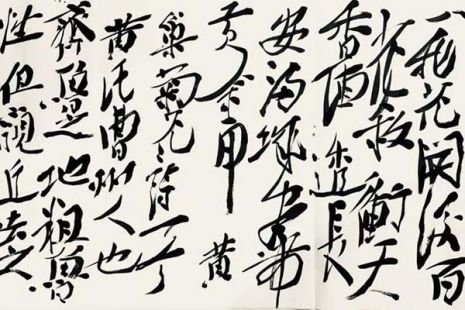 八我花開後百
花殺衝天
香陣透長
安滿城盡帶
黃金甲 黃
巢菊花詩一首
黃氏曹州人也
之地粗
性但觀丘